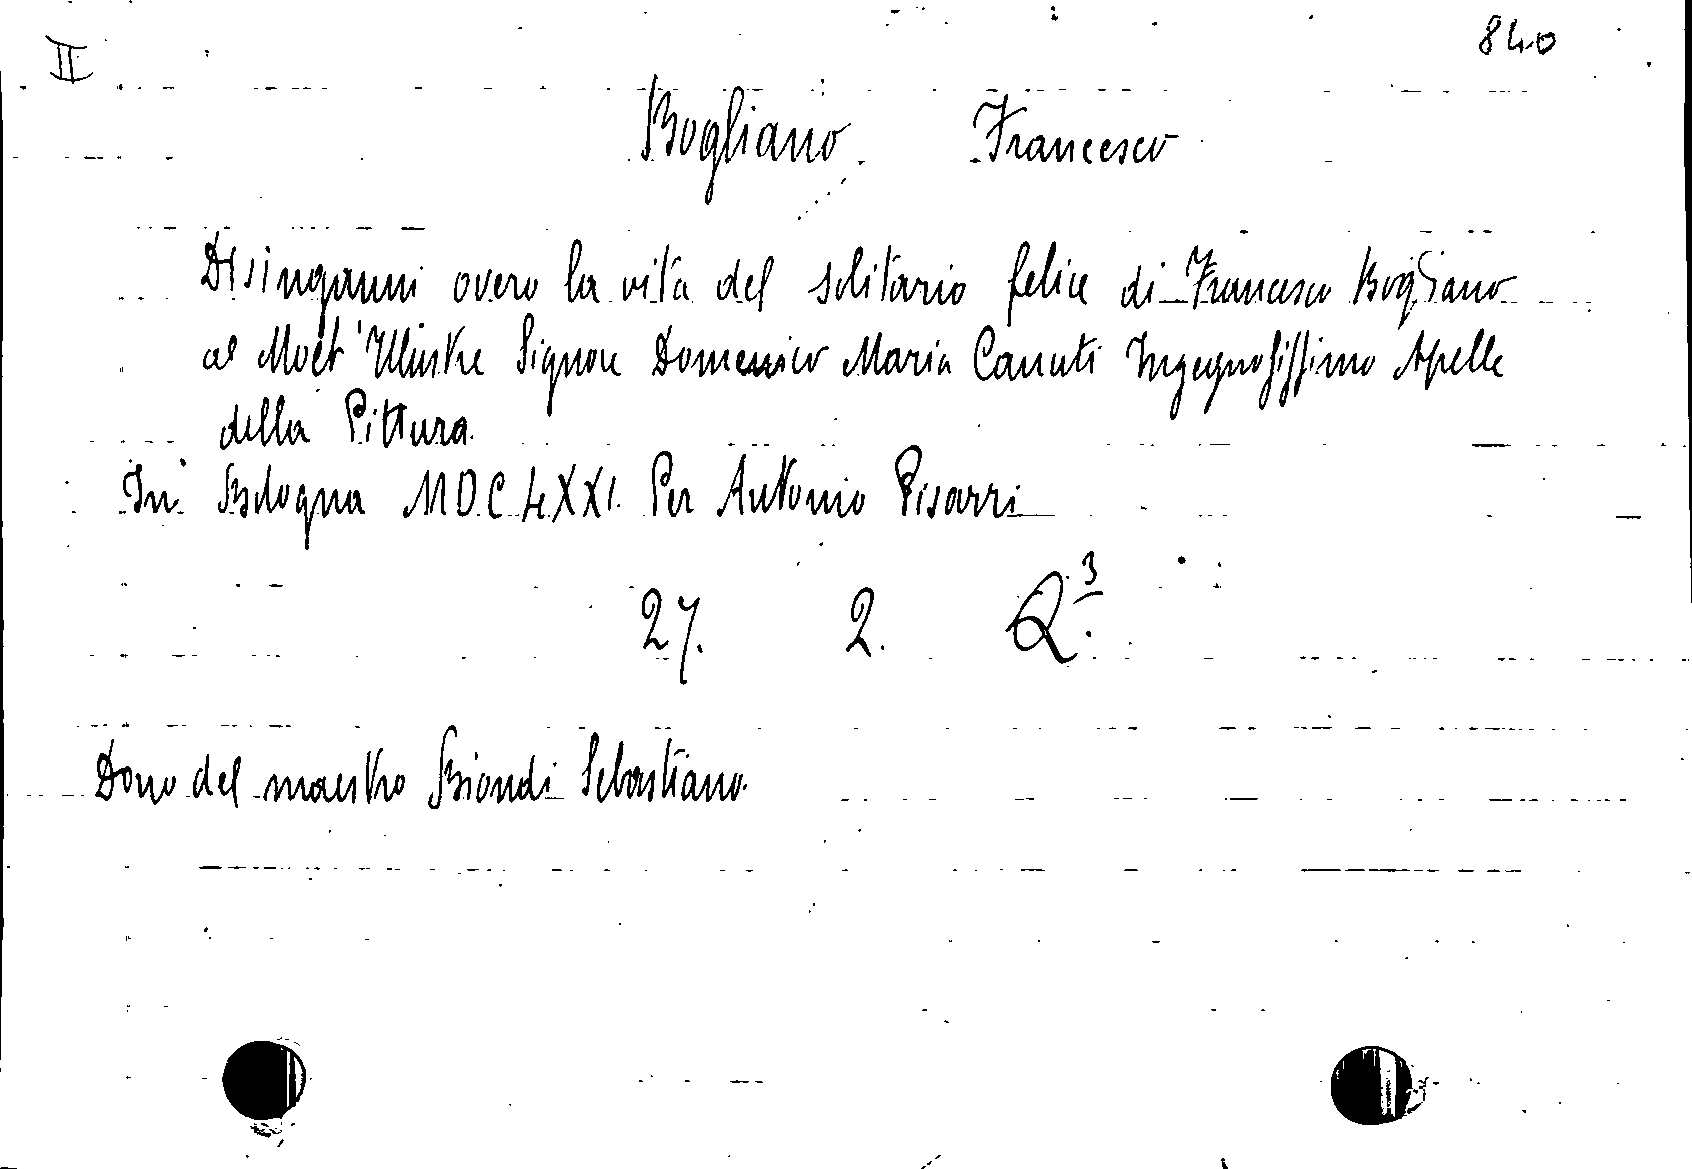 II
840
Bogliano Francesco
Disinganni overo la vita del solitario felice di Francesco Bogliano
al Molt'Illustre Signore Domenico Maria Canuti Ingegnosissimo Apelle
della Pittura.
In Bologna MDCLXXI. Per Antonio Pisarri
27. 2. Q.3
Dono del maestro Biondi Sebastiano.